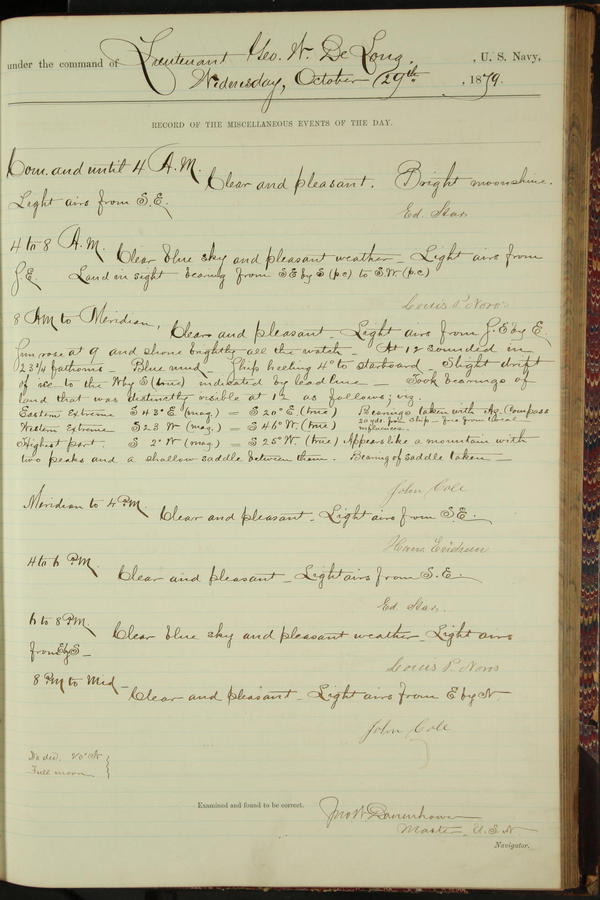 under the command of Lieutenant Geo. W. De Long, , U. S. Navy,
Wednesday, October 29th , 1879.
RECORD OF THE MISCELLANEOUS EVENTS OF THE DAY.
Com. and until 4 A.M. Clear and pleasant. Bright moonshine.
Light airs from S.E.
Ed. Star
4 to 8 A.M. Clear blue sky and pleasant weather – Light airs from
S.E. Land in sight bearing from SE by S (p.c) to S.W (p.c)
Louis P. Noros
8 AM to Meridian, Clear and pleasant – Light airs from S.E by E.
Sun rose at 9 and shone brightly all the watch – At 12 sounded in
23 3/4 fathoms – Blue mud – Ship heeling 4° to starboard – Slight drift
of ice to the W by S (true) indicated by lead line – Took bearings of
land that was distinctly visible at 12 as follows; viz.
Eastern Extreme S 43° E (mag.) = S 20° E. (true) Bearings taken with Az. Compass
Western Extreme S 23 W (mag.) = S 46° W. (true) 20 yds. from ship – free from local
influences.
Highest part. S 2° W (mag) = S 25° W. (true) Appears like a mountain with
two peaks and a shallow saddle between them. Bearing of saddle taken –
John Cole
Meridian to 4 PM. Clear and pleasant – Light airs from S.E.
Hans Erichsen
4 to 6 PM. Clear and pleasant – Light airs from S.E.
Ed. Star.
6 to 8 PM. Clear blue sky and pleasant weather – Light airs
from E by S –
Louis P. Noros
8 PM to Mid – Clear and pleasant – Light airs from E by N
John Cole
dec. 20° N
Full moon
Examined and found to be correct. Jno. W. Danenhower
Master U.S.N.
Navigator.